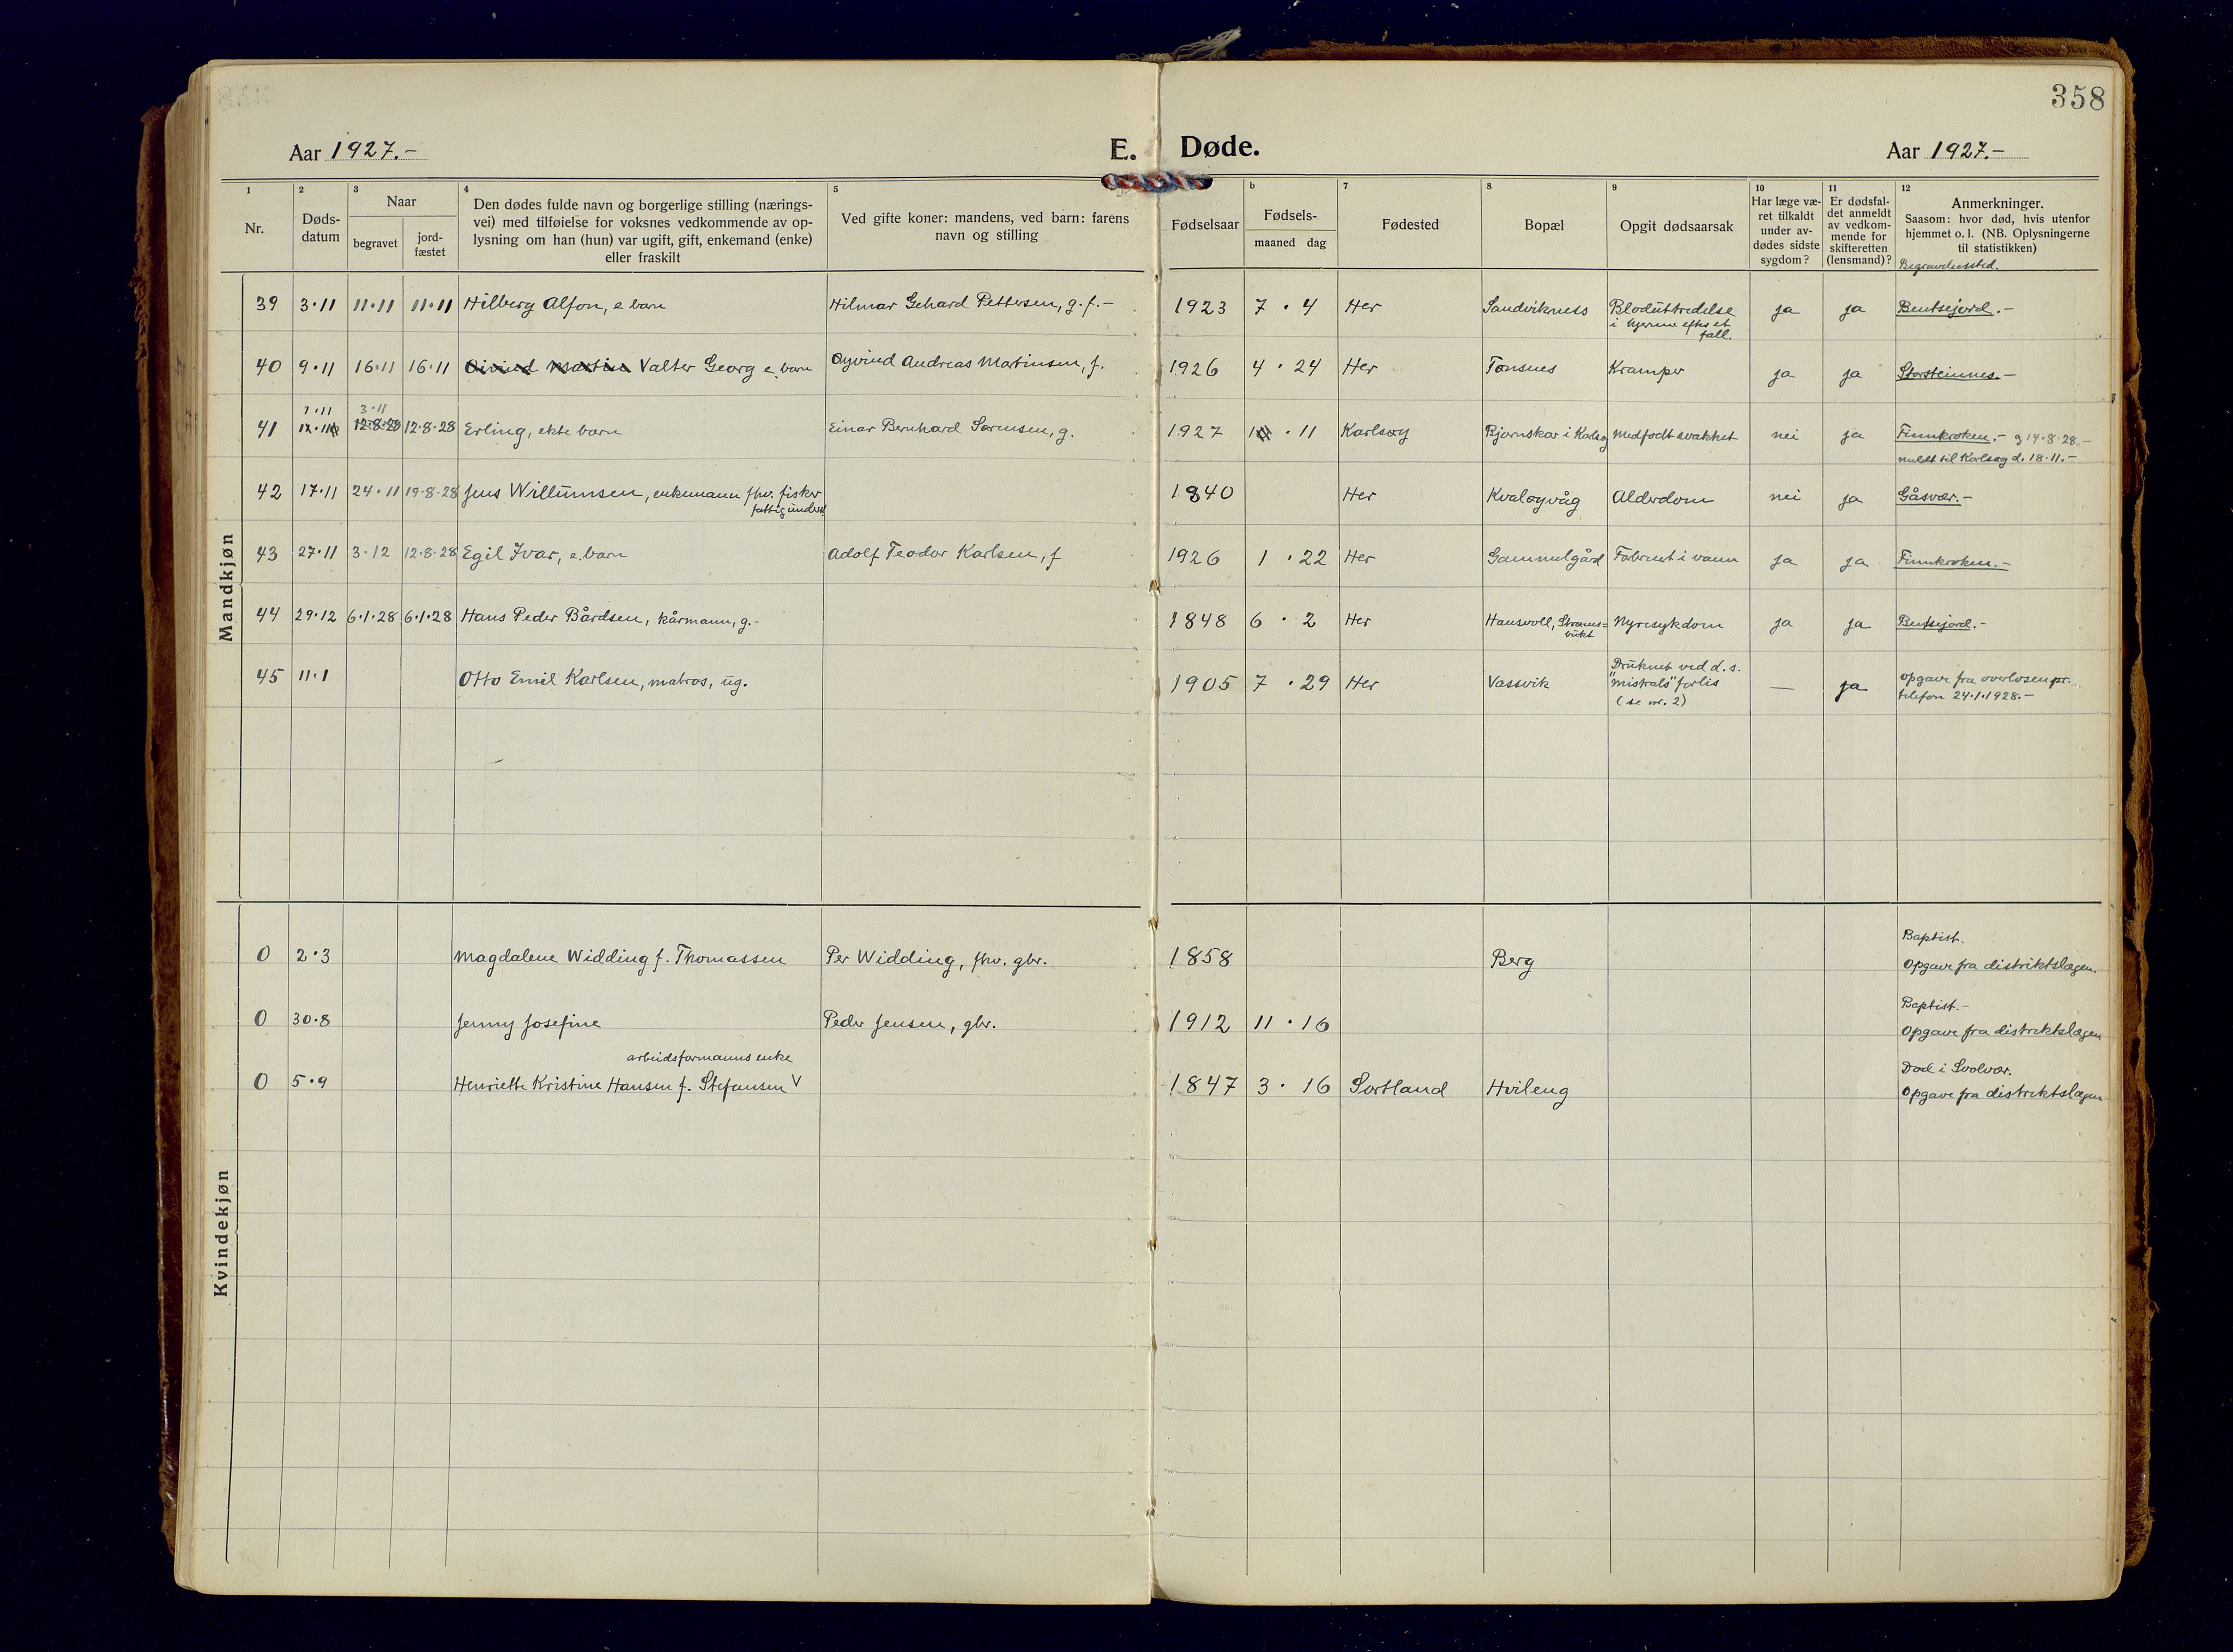 358
Aar 1927.-
E. Døde.
Aar 1927.-
1 2 3 4 5 b 7 8 9 10 11 12
Nr.
Døds-
datum
Naar
begravet
jord-
fæstet
Den dødes fulde navn og borgerlige stilling (nærings-
vei) med tilføielse for voksnes vedkommende av op-
lysning om han (hun) var ugift, gift, enkemand (enke)
eller fraskilt
Ved gifte koner: mandens, ved barn: farens
navn og stilling
Fødselsaar
Fødsels-
maaned dag
Fødested
Bopæl
Opgit dødsaarsak
Har læge væ-
ret tilkaldt
under av-
dødes sidste
sygdom?
Er dødsfal-
det anmeldt
av vedkom-
mende for
skifteretten
(lensmand)?
Anmerkninger.
Saasom: hvor død, hvis utenfor
hjemmet o. l. (NB. Oplysningerne
til statistikken)
Begravelsessted.
Mandkjøn
39 3·11 11·11 11·11 Hilberg Alfon, e barn Hilmar Gehard Pettersen, g. f.- 1923 7 · 4 Her Sandviknes Bloduttredelse ja ja Bentsejord.-
i hjerne efter et
fall.
40 9·11 16·11 16·11 Oivind Martin Valter Georg e. barn Øyvind Andreas Martinsen, f. 1926 4 · 24 Her Tønsnes Kramper ja ja Storsteinnes.-
7·11 3·11
41 12·8·28 12·8·28 Erling, ekte barn Einar Bernhard Sørensen, g. 1927 · 11 Karlsøy Bjørnskar i Karlsøy Medfødt svakhet nei ja Finnkroken.- g 14·8·28.-
meldt til Karlsøy d. 18·11.-
42 17·11 24·11 19·8·28 Jens Willumsen, enkemann fhv. fisker 1840 Her Kvaløyvåg Alderdom nei ja Gåsvær.-
fattigunderst.
43 27·11 3·12 12·8·28 Egil Ivar, e. barn Adolf Teodor Karlsen, f 1926 1 · 22 Her Gammelgård Forbrent i vann ja ja Finnkroken.-
44 29·12 6·1·28 6·1·28 Hans Peder Bårdsen, kårmann, g.- 1848 6 · 2 Her Hansvoll, Strøms=
bukt Nyresykdom ja ja Bentsejord.-
45 11·1 Otto Emil Karlsen, matros, ug. 1905 7 · 29 Her Vassvik Druknet ved d. s.
"Mistrals" forlis
(se nr. 2) — ja opgave fra overlosen pr.
telefon 24·1·1928.-
Kvindekjøn
0 2·3 Magdalene Widding f. Thomassen Per Widding, fhv. gbr. 1858 Berg Baptist.
Opgave fra distriktslægen.
0 30·8 Jenny Josefine Peder Jensen, gbr. 1912 11 · 16 Baptist.-
Opgave fra distriktslægen
arbeidsformanns enke
0 5·9 Henriette Kristine Hansen f. Stefansen V 1847 3 · 16 Sortland Hvileng Død i Svolvær.
Opgave fra distriktslægen